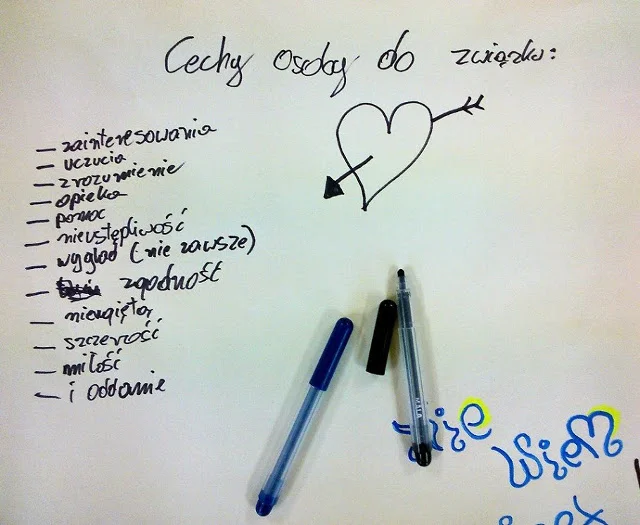 Cechy osoby do związku:
– zainteresowania
– uczucia
– zrozumienie
– opieka
– pomoc
– nieustępliwość
– wygląd (nie zawsze)
– zgodność
– nieugiętą
– szczerość
– miłość
– i oddanie
wiem